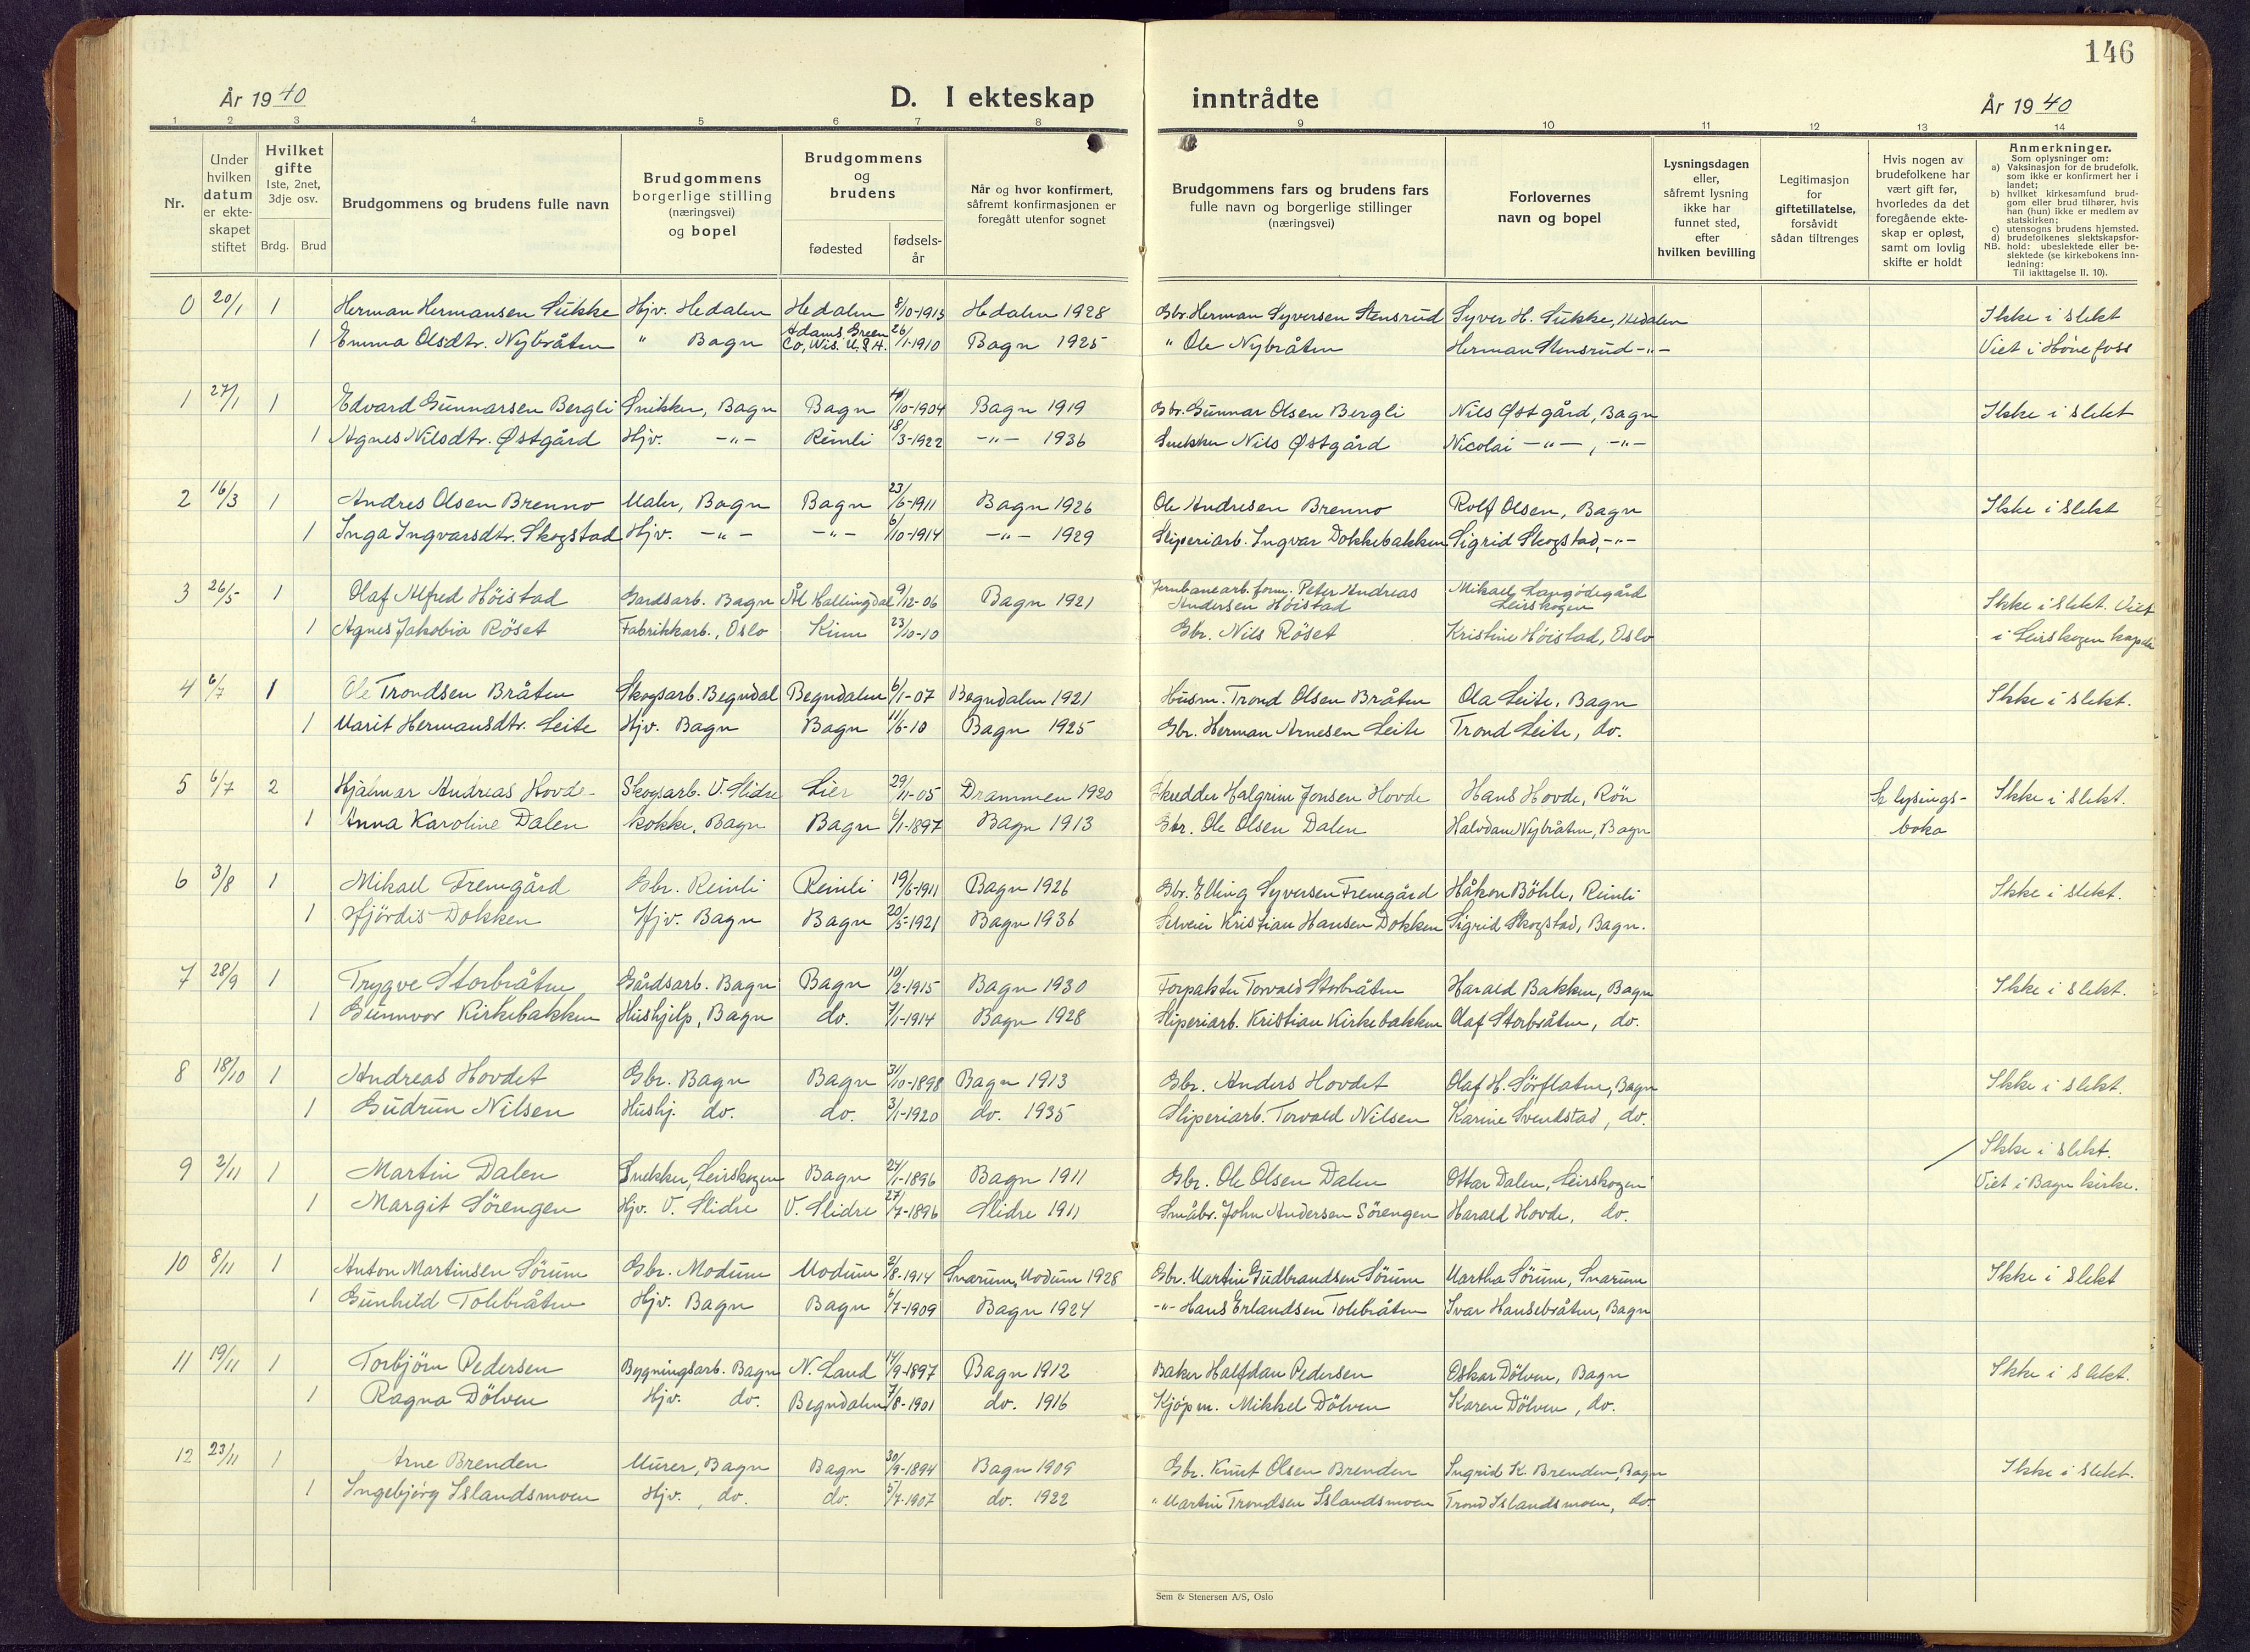 146
År 1940
D. I ekteskap inntrådte
År 1940
1 2 3 4 5 6 7 8 9 10 11 12 13 14
Nr.
Under hvilken datum er ekte-skapet stiftet
Hvilket gifte 1ste, 2net, 3dje osv.
Brdg. Brud
Brudgommens og brudens fulle navn
Brudgommens borgerlige stilling (næringsvei) og bopel
Brudgommens og brudens
fødested
fødsels-år
Når og hvor konfirmert, såfremt konfirmasjonen er foregått utenfor sognet
Brudgommens fars og brudens fars fulle navn og borgerlige stillinger (næringsvei)
Forlovernes navn og bopel
Lysningsdagen eller, såfremt lysning ikke har funnet sted, efter hvilken bevilling
Legitimasjon for giftetillatelse, forsåvidt sådan tiltrenges
Hvis nogen av brudefolkene har vært gift før, hvorledes da det foregående ekte-skap er opløst, samt om lovlig skifte er holdt
Anmerkninger.
Som oplysninger om:
a) Vaksinasjon for de brudefolk. som ikke er konfirmert her i landet;
b) hvilket kirkesamfund brud-gom eller brud tilhører, hvis han (hun) ikke er medlem av statskirken;
c) utensogns brudens hjemsted.
d) brudefolkenes slektskapsfor-hold: ubeslektede eller be-slektede (se kirkebokens inn-ledning:
NB.
Til iakttagelse II. 10).
0 20/1 1 Herman Hermansen Sukke Hjv. Hedalen Hedalen 8/10-1913 Hedalen 1928 Gbr. Herman Syversen Stensrud Syver H. Sukke, Hedalen Ikke i slekt
1 Emma Olsdtr. Nybråten " Bagn Adams Green Co, Wis. U.S.A. 26/1-1910 Bagn 1925 " Ole Nybråten Herman Stensrud -"- Viet i Hønefoss
1 27/1 1 Edvard Gunnarsen Bergli Snikker, Bagn Bagn /10-1904 Bagn 1919 Gbr. Gunnar Olsen Bergli Nils Østgård, Bagn Ikke i slekt
1 Agnes Nilsdtr. Østgård Hjv. -"- Reinli 18/3-1922 -"- 1936 Snekker Nils Østgård Nicolai -"-, -"-
2 16/3 1 Andres Olsen Brenno Maler, Bagn Bagn 23/6-1911 Bagn 1926 Ole Andresen Brenno Rolf Olsen, Bagn Ikke i slekt
1 Inga Ingvarsdtr. Skogstad Hjv. -"- -"- 6/10-1914 -"- 1929 Sliperiarb. Ingvar Dokkebakken Sigrid Skogstad, -"-
3 26/5 1 Olaf Alfred Höistad Gardsarb. Bagn Ål Hallingdal 9/12-06 Bagn 1921 Jernbanearb. form. Peter Andreas Andersen Höistad Mikael Langødegård Leirskogen Ikke i slekt. Viet
1 Agnes Jakobia Röset Fabrikkarb., Oslo Kinn 23/10-10 Gbr. Nils Röset Kristine Höistad, Oslo i Leirskogen kapell
4 6/7 1 Ole Trondsen Bråten Skogsarb. Begndal Begndalen 6/1-07 Begndalen 1921 Husm. Trond Olsen Bråten Ola Leite, Bagn Ikke i slekt.
1 Marit Hermansdtr. Leite Hjv. Bagn Bagn 11/6-10 Bagn 1925 Gbr. Herman Arnesen Leite Trond Leite, do.
5 6/7 2 Hjalmar Andreas Hovde- Skogsarb. V. Slidre Lier 29/11-05 Drammen 1920 Skredder Halgrim Jonsen Hovde Hans Hovde, Rön Se lysings- Ikke i slekt.
1 Anna Karoline Dalen kokke, Bagn Bagn 6/1-1897 Bagn 1913 Gbr. Ole Olsen Dalen Halvdan Nybråten, Bagn boka
6 3/8 1 Mikael Fremgård Gbr. Reinli Reinli 19/6-1911 Bagn 1926 Gbr. Elling Syversen Fremgård Håkon Böhle, Reinli Ikke i slekt.
1 Hjördis Dokken Hjv. Bagn Bagn 20/5-1921 Bagn 1936 Selveier Kristian Hansen Dokken Sigrid Skogstad, Bagn.
7 28/9 1 Trygve Storbråten Gårdsarb. Bagn Bagn 10/2-1915 Bagn 1930 Forpakter Torvald Storbråten Harald Bakken, Bagn Ikke i slekt.
1 Gunnvor Kirkebakken Hushjelp, Bagn do. 7/1-1914 Bagn 1928 Sliperiarb. Kristian Kirkebakken Olaf Storbråten, do.
8 18/10 1 Andreas Hovdet Gbr. Bagn Bagn 31/10-1898 Bagn 1913 Gbr. Anders Hovdet Olaf H. Sörflaten, Bagn Ikke i slekt.
1 Gudrun Nilsen Hushj. do. do. 3/1-1920 do. 1935 Sliperiarb. Torvald Nilsen Karine Svenkstad, do.
Ikke i slekt.
9 2/11 1 Martin Dalen Snekker, Leirskogen Bagn 24/1-1896 Bagn 1911 Gbr. Ole Olsen Dalen Ottar Dalen, Leirskogen Viet i Bagn kirke.
1 Margit Sörengen Hjv. V. Slidre V. Slidre 27/7-1896 Slidre 1911 Småbr. John Andersen Sörengen Harald Hovde, do.
10 8/11 1 Anton Martinsen Sörum Gbr. Modum Modum 2/8-1914 Snarum, Modum 1928 Gbr. Martin Gudbrandsen Sörum Martha Sörum, Snarum Ikke i slekt
1 Gunhild Tolebråten Hjv. Bagn Bagn 6/7-1909 Bagn 1924 -"- Hans Erlandsen Tolebråten Ivar Hansebråten, Bagn
11 19/11 1 Torbjörn Pedersen Bygningsarb. Bagn N. Land 14/9-1897 Bagn 1912 Baker Halfdan Pedersen Oskar Dölven, Bagn Ikke i slekt.
1 Ragna Dölven Hjv. do. Begndalen 7/8-1901 do. 1916 Kjøpm. Mikkel Dölven Karen Dölven, do.
12 23/11 1 Arne Brenden Murer, Bagn Bagn 30/9-1894 Bagn 1909 Gbr. Knut Olsen Brenden Ingrid K. Brenden, Bagn Ikke i slekt.
1 Ingebjörg Islandsmoen Hjv., do. do. 5/7-1907 do. 1922 " Martin Trondsen Islandsmoen Trond Islandsmoen, do.
Sem & Stenersen A/S, Oslo